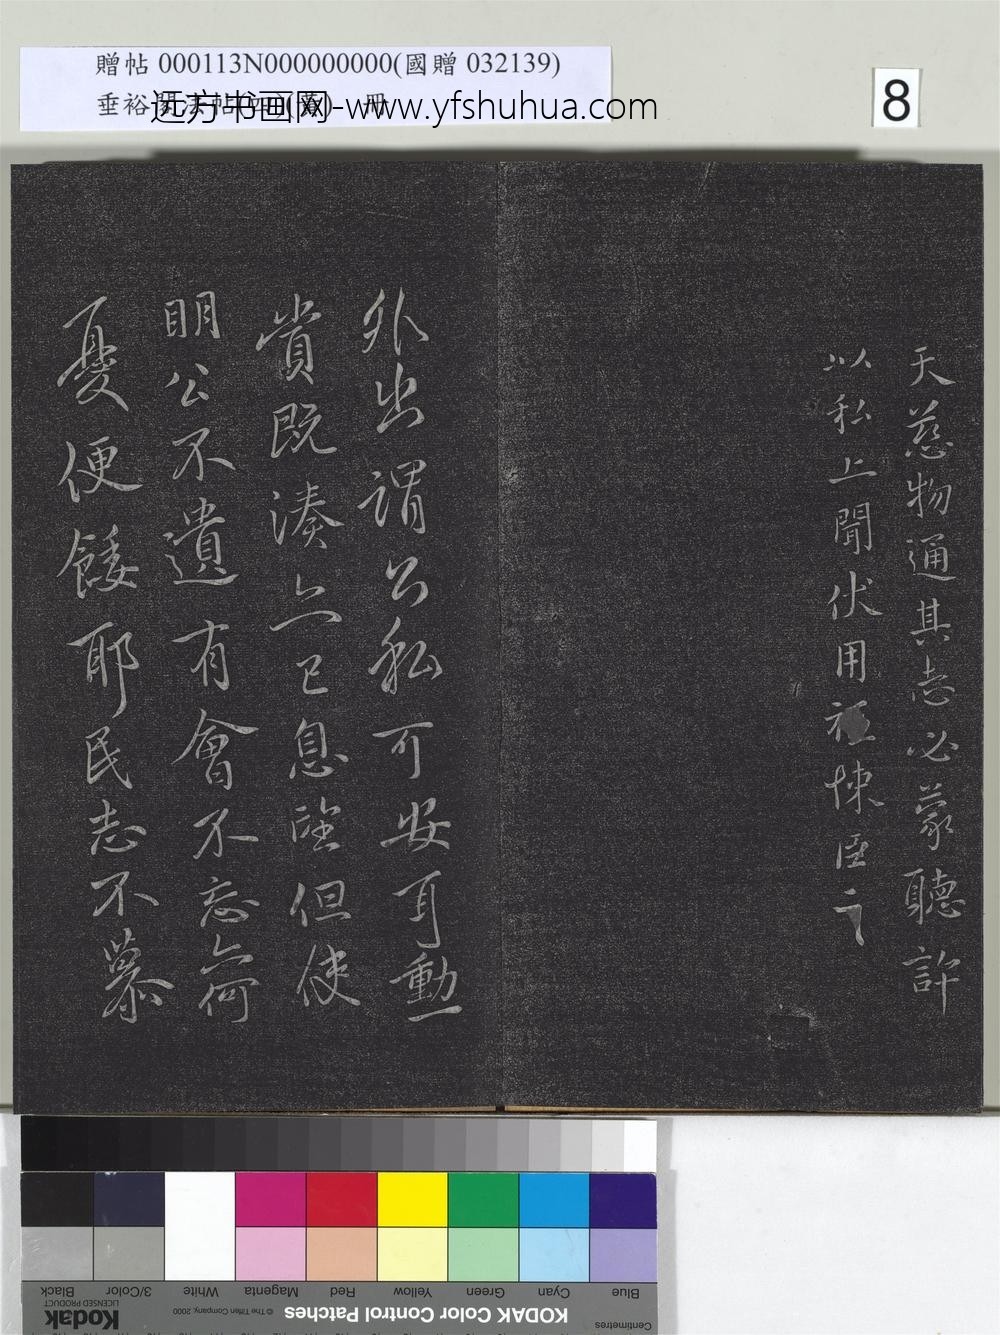 贈帖 000113N000000000(國贈 032139)
垂裕 帖 冊
远方书画网-www.yfshuhua.com
8
天慈物通其志必蒙聽許
以私上聞伏用 悚臣
外出謂公私可安耳動
賞既湊亦已息望但使
明公不遺有會不忘荷
憂便餧耶民志不慕
Blue Cyan Green Yellow Red Magenta White 3/Color Black
Centimetres KODAK Color Control Patches © The Tiffen Company, 2000 Kodak LICENSED PRODUCT